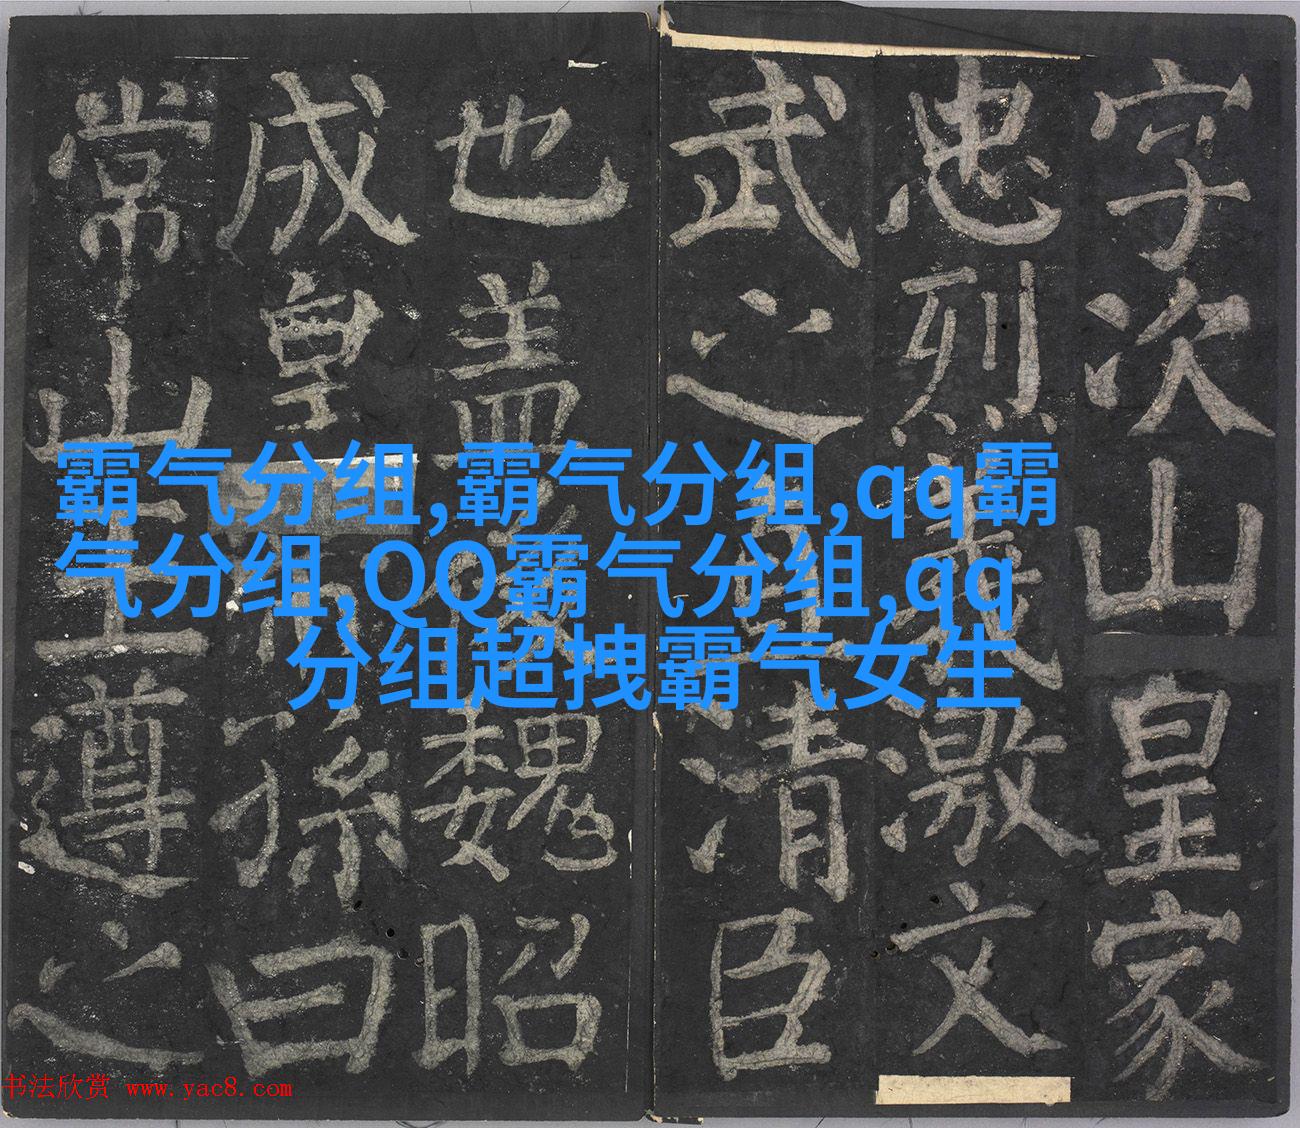 字次山皇家
忠烈義激文
武之直清臣
也盖後魏昭
成皇帝孫曰
常山王遵之
霸气分组,霸气分组,qq霸
气分组,QQ霸气分组,qq
分组超拽霸气女生
书法欣赏 www.yac8.com